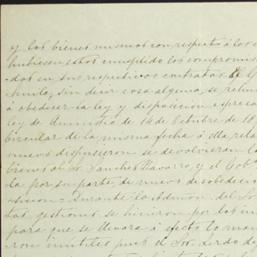 y los bienes mismos con respecto a los
hubiesen estos cumplido los compromisos
dos en sus respectivos contratos. El G
sin decir cosa alguna, se
á obedecer la ley y disposicion
ley de Amnistia de 14 de Octubre de 18
circular de la misma fecha á ella rela
nuevo dispusieron se devolvieran
bienes Sanchez Navarro, y el Gob
la por su parte, de nuevo desobedeció
Durante la
las gestiones se hicieron por los
para que se llevara á efecto lo man
ron inutiles pues el Sor. Lerdo de